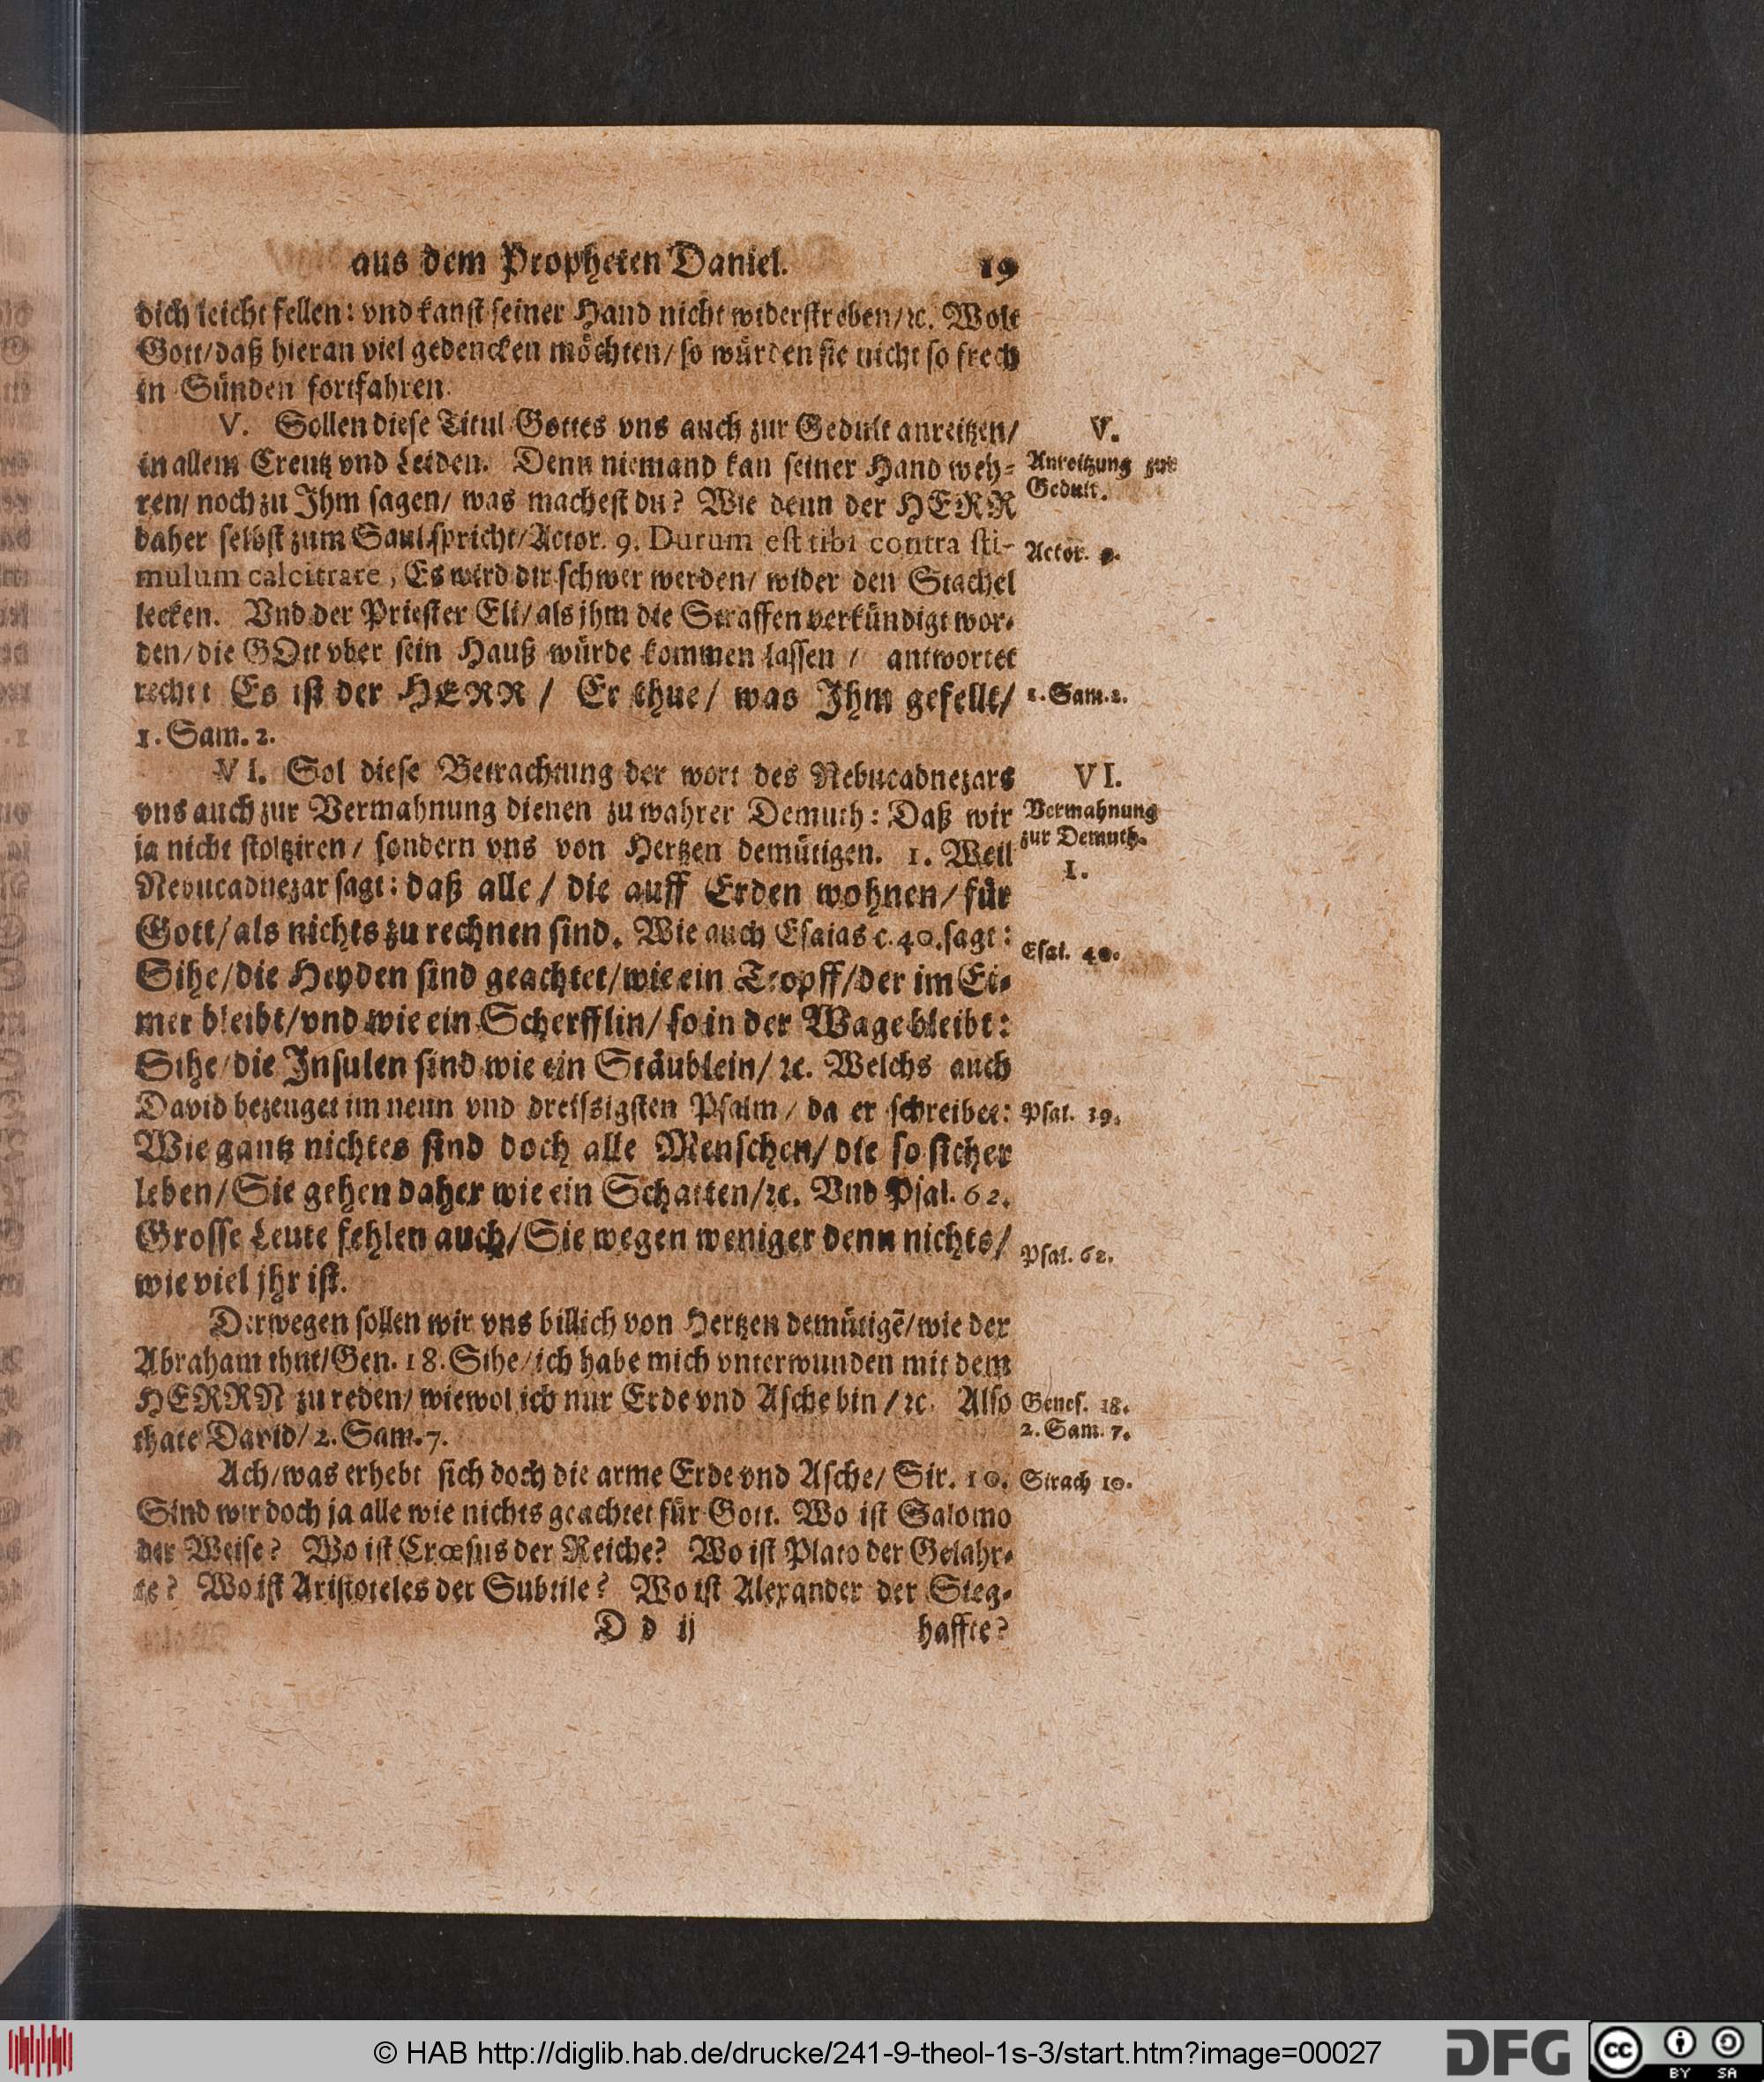 aus dem Propheten Daniel. 19
dich leicht fellen: vnd kanst seiner Hand nicht widerstreben/ꝛc. Wolt
Gott/daß hieran viel gedencken möchten/ so würden sie nicht so frech
in Sünden fortfahren.
V. Sollen diese Titul Gottes vns auch zur Gedult anreitzen/
V.
in allem Creutz vnd Leiden. Denn niemand kan seiner Hand weh-
Anreitzung zur
ren/ noch zu Ihm sagen/ was machest du? Wie denn der HERR
Gedult.
daher selbst zum Saul spricht/Actor. 9. Durum est tibi contra sti-
Actor. 9.
mulum calcitrare, Es wird dir schwer werden/ wider den Stachel
lecken. Vnd der Priester Eli/ als ihm die Straffen verkündigt wor-
den/ die GOtt vber sein Hauß würde kommen lassen / antwortet
recht: Es ist der HERR / Er thue/ was Ihm gefellt/
1. Sam. 2.
1. Sam. 2.
VI. Sol diese Betrachtung der wort des Nebucadnezars
VI.
vns auch zur Vermahnung dienen zu wahrer Demuth: Daß wir
Vermahnung
ja nicht stoltziren/ sondern vns von Hertzen demütigen. 1. Weil
zur Demuth.
1.
Nebucadnezar sagt: daß alle / die auff Erden wohnen/ für
Gott/als nichts zu rechnen sind. Wie auch Esaias c. 40. sagt:
Esai. 40.
Sihe/die Heyden sind geachtet/wie ein Tropff/der im Ei-
mer bleibt/vnd wie ein Scherfflin/ so in der Wage bleibt:
Sihe/die Insulen sind wie ein Stäublein/ ꝛc. Welchs auch
David bezeuget im neun vnd dreissigsten Psalm/ da er schreibet:
Psal. 39.
Wie gantz nichtes sind doch alle Menschen/ die so sicher
leben/Sie gehen daher wie ein Schatten/ꝛc. Vnd Psal. 62.
Grosse Leute fehlen auch/Sie wegen weniger denn nichts/
Psal. 62.
wie viel jhr ist.
Derwegen sollen wir vns billich von Hertzen demütigẽ/wie der
Abraham thut/Gen. 18. Sihe/ich habe mich vnterwunden mit dem
HERRN zu reden/ wiewol ich nur Erde vnd Asche bin /ꝛc. Also
Genes. 18.
thate David/ 2. Sam. 7.
2. Sam. 7.
Ach/was erhebt sich doch die arme Erde vnd Asche/ Sir. 10.
Sirach 10.
Sind wir doch ja alle wie nichts geachtet für Gott. Wo ist Salomo
der Weise? Wo ist Crœsus der Reiche? Wo ist Plato der Gelahr-
te? Wo ist Aristoteles der Subtile? Wo ist Alexander der Sieg-
D d ij haffte?
© HAB http://diglib.hab.de/drucke/241-9-theol-1s-3/start.htm?image=00027
DFG
cc BY SA